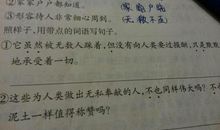 ②家家户户都知道。 (家喻户晓)
③形容待人非常细心周到。 (无微不至)
照样子，用带点的词语写句子。
①它虽然被无数人踩着，但没有向人类要过报酬，只是默默
地承受着一切。
②这些为人类做出无私奉献的人，不也同样伟大吗？不
泥土一样值得称赞吗？